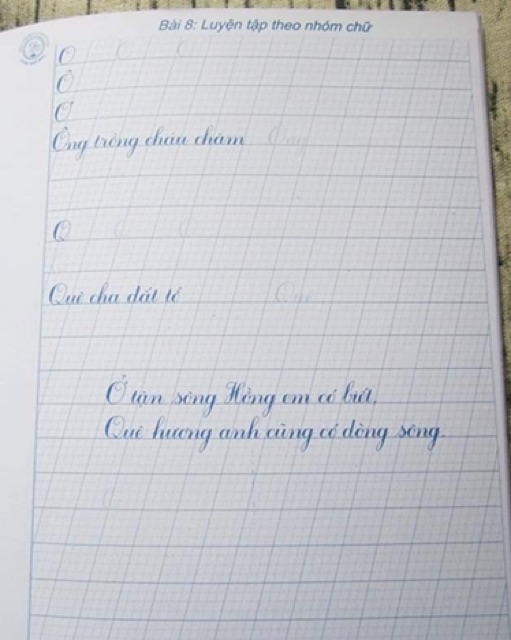 Bài 8: Luyện tập theo nhóm chữ
O
Ô
Ơ
Ông trồng cháu chăm Ông
Q
Quê cha đất tổ Quê
Ở tận sông Hồng em có biết,
Quê hương anh cũng có dòng sông.